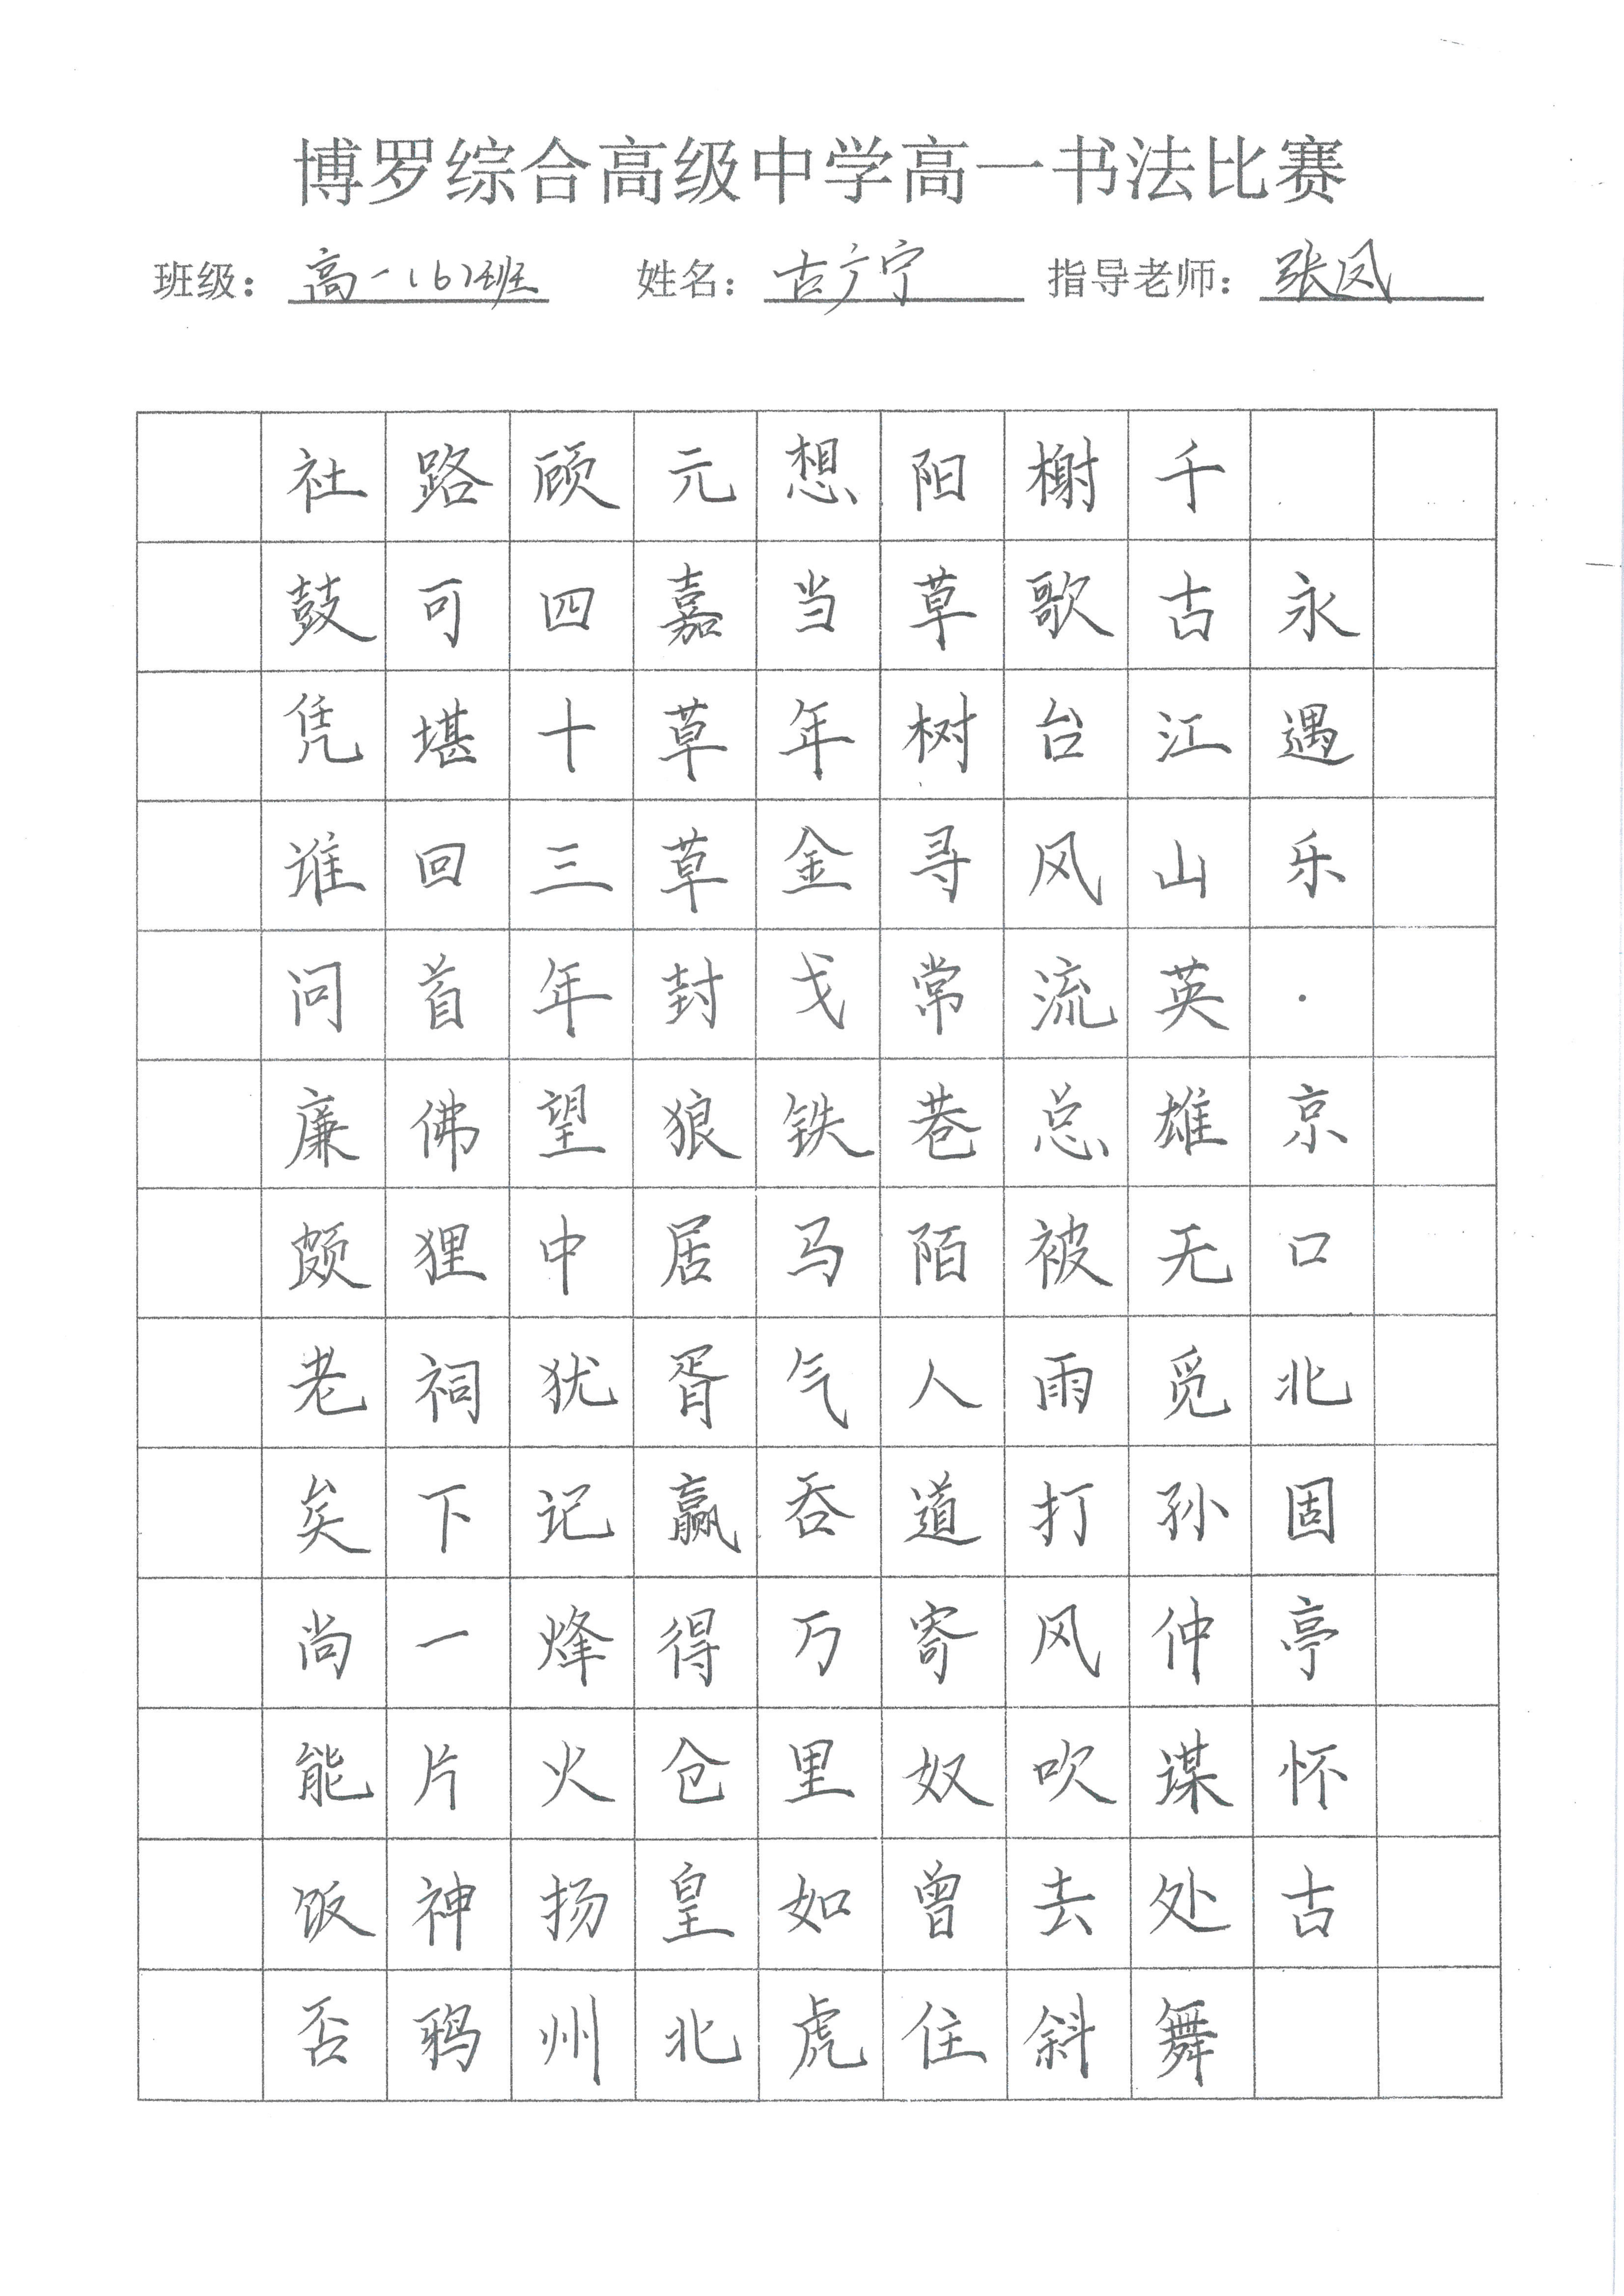 博罗综合高级中学高一书法比赛
班级：高一（6）班 姓名：古广宁 指导老师：张凤
永遇乐·京口北固亭怀古
千古江山英雄无觅孙仲谋处舞
榭歌台风流总被雨打风吹去斜
阳草树寻常巷陌人道寄奴曾住
想当年金戈铁马气吞万里如虎
元嘉草草封狼居胥赢得仓皇北
顾四十三年望中犹记烽火扬州
路可堪回首佛狸祠下一片神鸦
社鼓凭谁问廉颇老矣尚能饭否